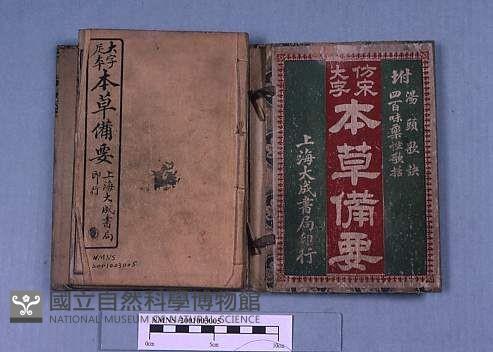 大字
足本
本草備要
上海大成書局
印行
NMNS
2001003005
附
湯頭歌訣
四百味藥性歌括
仿宋
大字
本草備要
上海大成書局印行
國立自然科學博物館
NATIONAL MUSEUM OF NATURAL SCIENCE
NMNS 2001003005
0cm
5cm
10cm